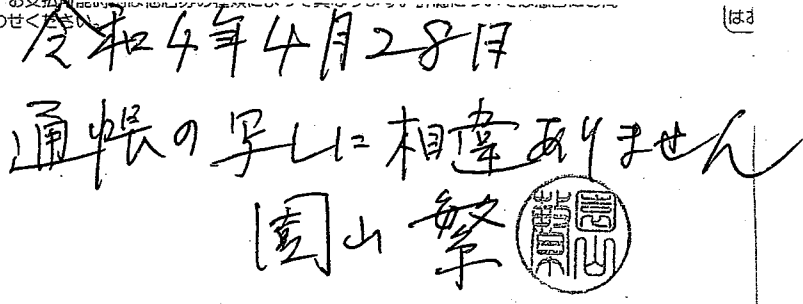 わせください。
はお
令和4年4月28日
通帳の写しに相違ありません
園山 繁
園山繁